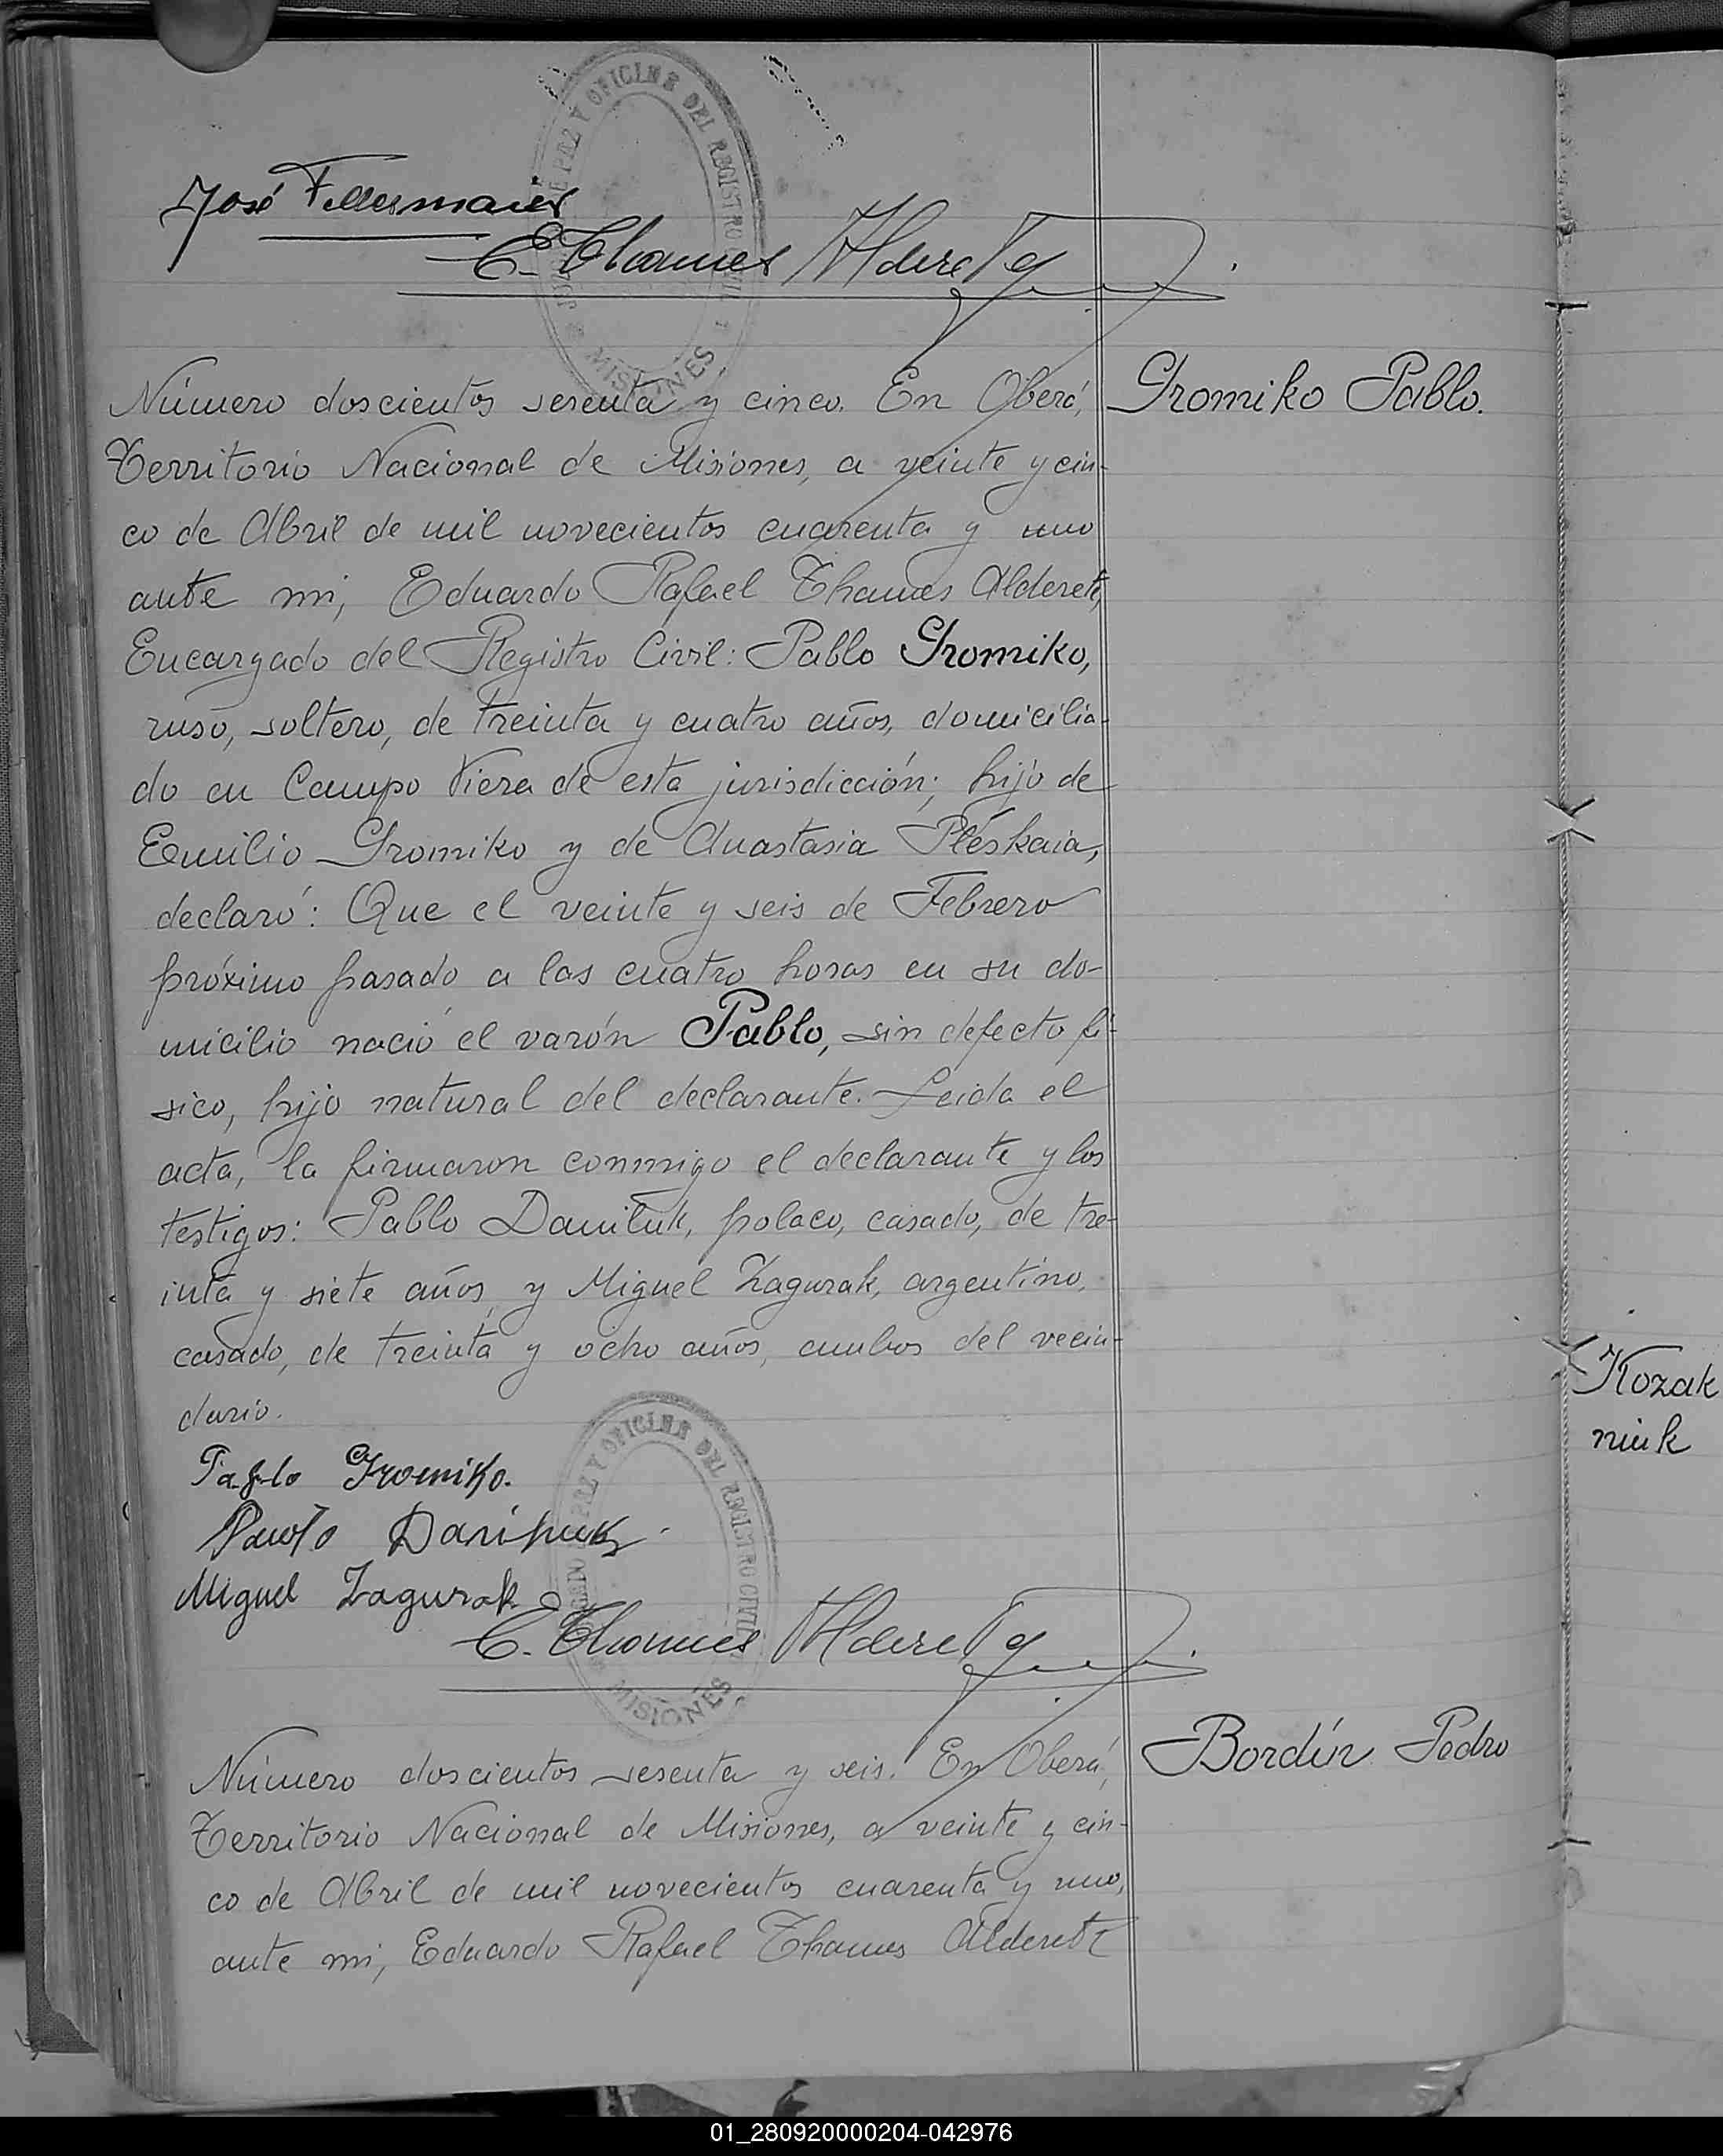 OFICINA DEL REGISTRO CIVIL
MISIONES
José Fellermaier
E. Thames Alderete
Número doscientos sesenta y cinco. En Oberá,
Gromiko Pablo.
Territorio Nacional de Misiones, a veinte y cin-
co de Abril de mil novecientos cuarenta y uno
ante mi, Eduardo Rafael Thames Alderete,
Encargado del Registro Civil: Pablo Gromiko,
ruso, soltero, de treinta y cuatro años, domicilia-
do en Campo Viera de esta jurisdicción; hijo de
Emilio Gromiko y de Anastasia Pléskaia,
declaró: Que el veinte y seis de Febrero
próximo pasado a las cuatro horas en su do-
micilio nació el varón Pablo, sin defecto fí-
sico, hijo natural del declarante. Leida el
acta, la firmaron conmigo el declarante y los
testigos: Pablo Daniluk, polaco, casado, de tre-
inta y siete años, y Miguel Zagurak, argentino,
casado, de treinta y ocho años, ambos del vecin-
dario.
Kozak
niuk
Pablo Gromiko.
Miguel Zagurak
OFICINA DEL REGISTRO CIVIL
MISIONES
E. Thames Alderete
Número doscientos sesenta y seis. En Oberá,
Bordín Pedro
Territorio Nacional de Misiones, a veinte y cin-
co de Abril de mil novecientos cuarenta y uno,
ante mi, Eduardo Rafael Thames Alderete
01_280920000204-042976